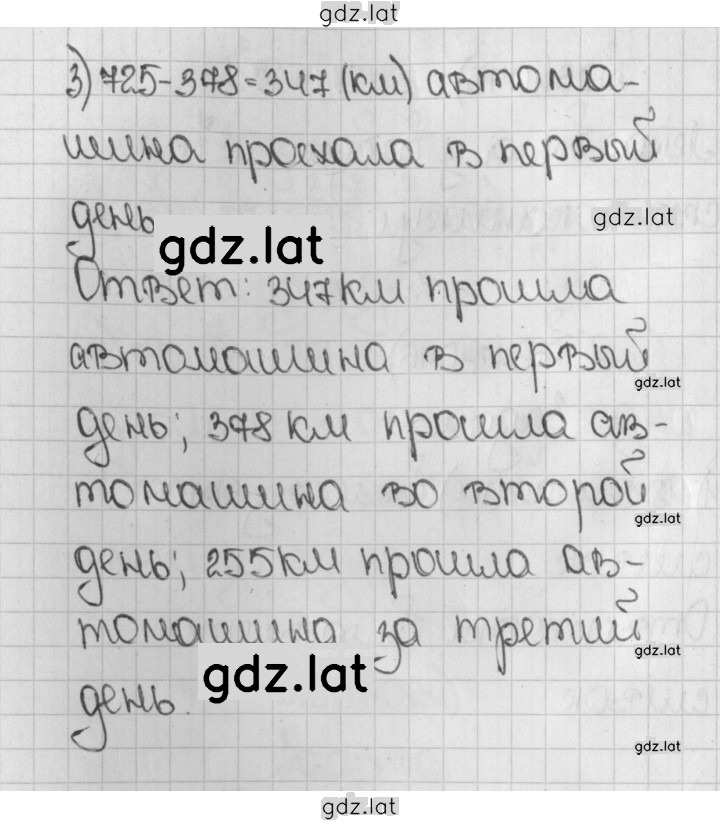 gdz.lat
3) 725-378=347 (км) автома-
шина проехала в первый
день
gdz.lat
gdz.lat
Ответ: 347 км прошла
автомашина в первый
gdz.lat
день; 378 км прошла ав-
томашина во второй
gdz.lat
день; 255 км прошла ав-
томашина за третий
gdz.lat
gdz.lat
день.
gdz.lat
gdz.lat